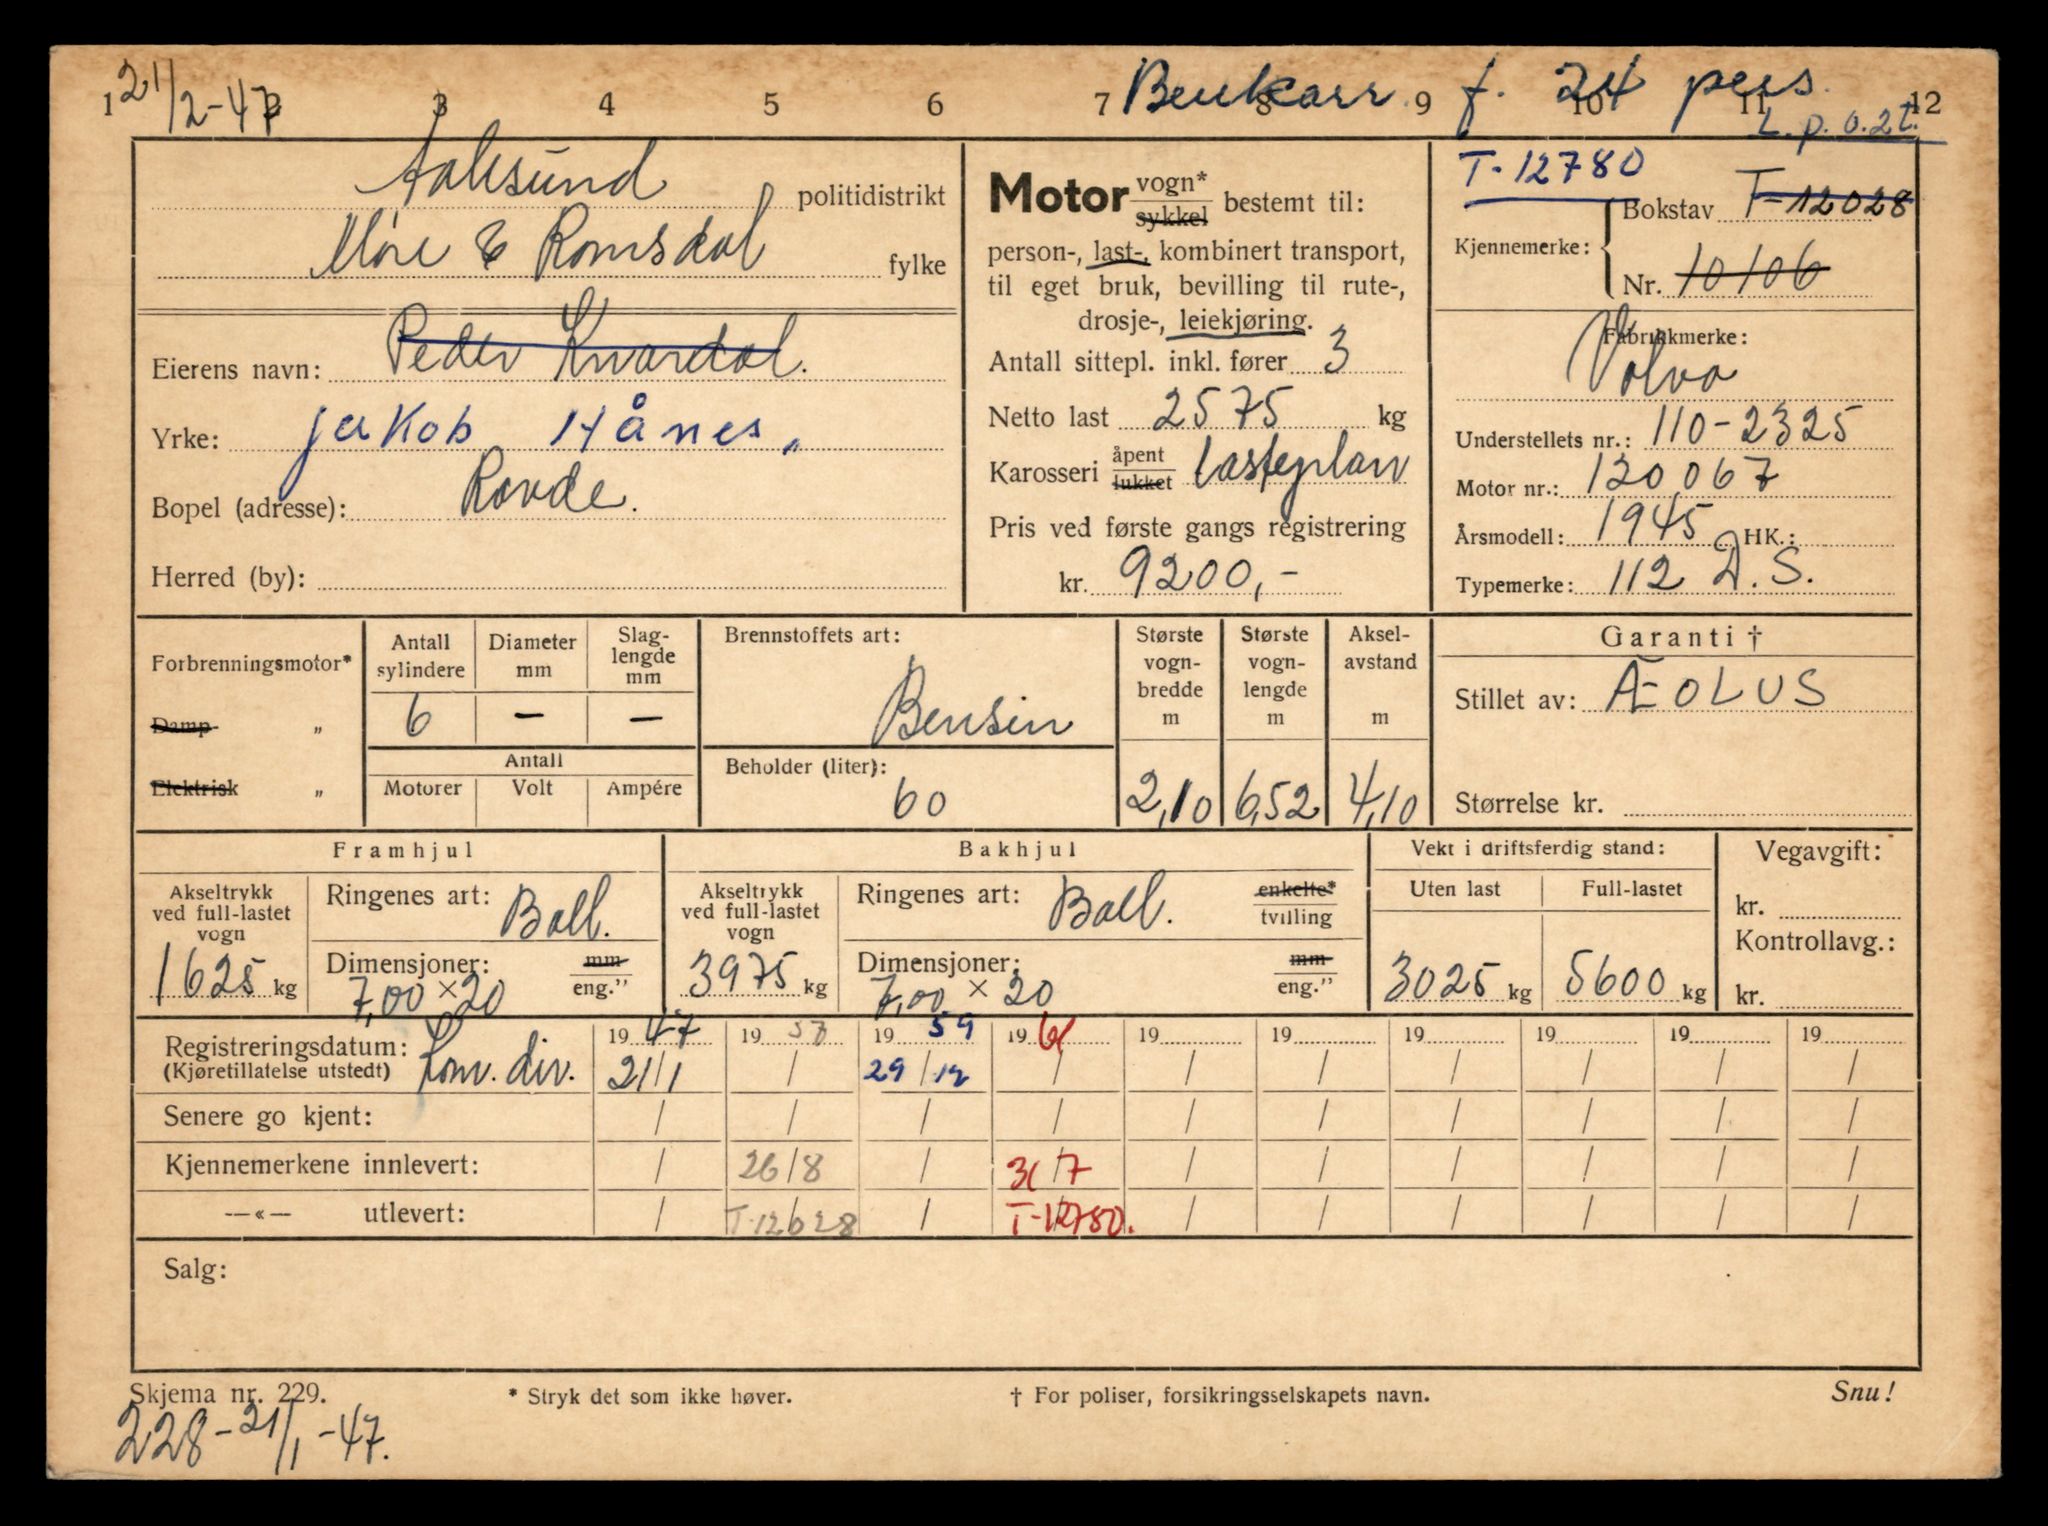 21/2-47 Benkarr f. 24 pers.
1 2 3 4 5 6 7 8 9 10 11 12
L.p.o.2t.
Aalesund politidistrikt
Møre & Romsdal fylke
Eierens navn: Peder Kvardal.
Yrke: Jakob Hånes,
Bopel (adresse): Rovde.
Herred (by):
Motor vogn* sykkel bestemt til:
person-, last-, kombinert transport,
til eget bruk, bevilling til rute-,
drosje-, leiekjøring.
Antall sittepl. inkl. fører 3
Netto last 2575 kg
Karosseri åpent lukket lasteplan
Pris ved første gangs registrering
kr. 9200,-
T-12780
Kjennemerke: Bokstav T-12028
Nr. 10106
Fabrikkmerke:
Volvo
Understellets nr.: 110-2325
Motor nr.: 120067
Årsmodell: 1945 HK.:
Typemerke: 112 D.S.
Forbrenningsmotor*
Damp „
Elektrisk „
Antall sylindere Diameter mm Slag-lengde mm
6 — —
Antall
Motorer Volt Ampére
Brennstoffets art:
Bensin
Beholder (liter):
60
Største vogn-bredde m 2,10
Største vogn-lengde m 6,52
Aksel-avstand m 4,10
Garanti †
Stillet av: ÆOLUS
Størrelse kr.
Framhjul
Akseltrykk ved full-lastet vogn
1625 kg
Ringenes art: Ball.
Dimensjoner: mm eng."
7,00 × 20
Bakhjul
Akseltrykk ved full-lastet vogn
3975 kg
Ringenes art: Ball. enkelte* tvilling
Dimensjoner: mm eng."
7,00 × 20
Vekt i driftsferdig stand:
Uten last Full-lastet
3025 kg 5600 kg
Vegavgift:
kr.
Kontrollavg.:
kr.
Registreringsdatum: 1947 1957 1959 1961 19 19 19 19 19 19
(Kjøretillatelse utstedt) 21/1 / 29/12 / / / / / / /
Senere go kjent: / / / / / / / / / /
Kjennemerkene innlevert: / 26/8 / 31/7 / / / / / /
—«— utlevert: / T-12028 / T-12780. / / / / / /
Salg:
Skjema nr. 229. * Stryk det som ikke høver. † For poliser, forsikringsselskapets navn. Snu!
228-21/1-47.